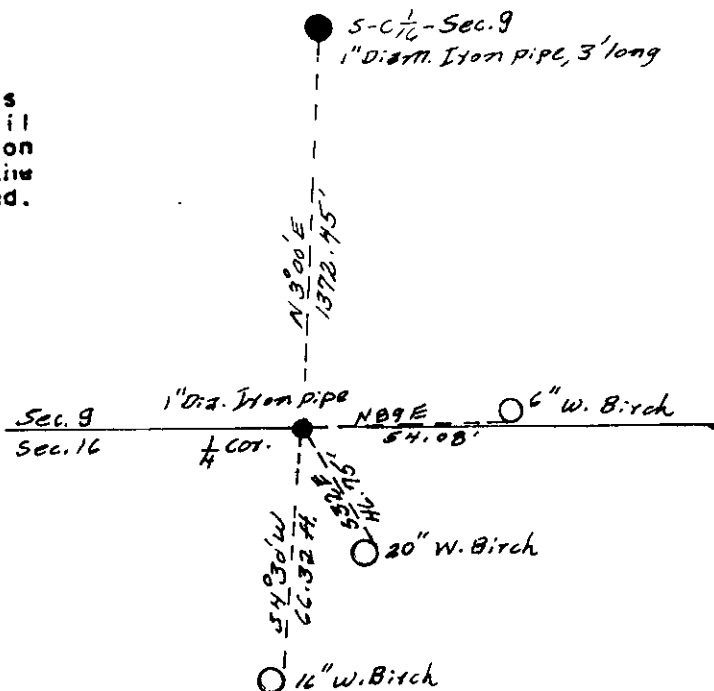 S-C 1/16 - Sec. 9
1" Diam. Iron pipe, 3' long
s
il
on
ine
ed.
N 3°00' E
1372.45'
1" Dia. Iron pipe
Sec. 9
Sec. 16
1/4 Cor.
N89E
54.08'
6" W. Birch
S32E
46.75'
20" W. Birch
S4°30'W
66.32 ft.
16" W. Birch